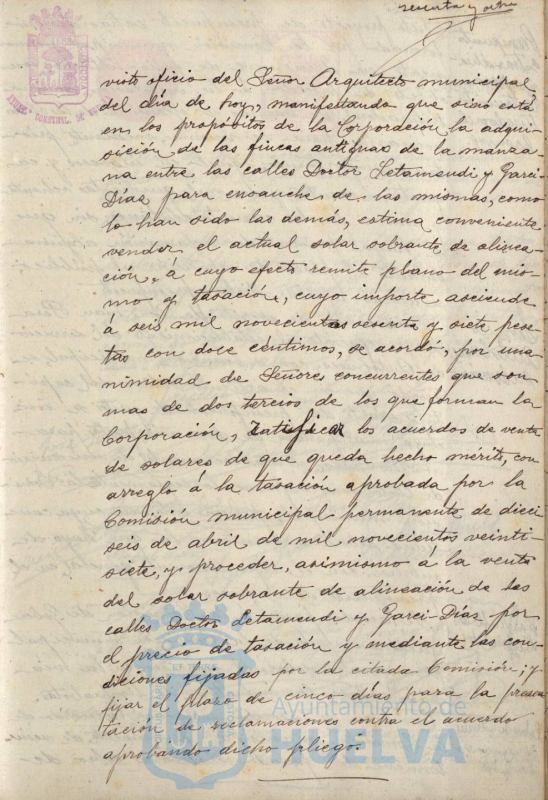 sesenta y ocho
visto oficio del Señor Arquitecto municipal,
del día de hoy, manifestando que si no está
en los propósitos de la Corporación la adqui-
sición de las fincas antiguas de la manza-
na entre las calles Doctor Letamendi y Garci-
Díaz para ensanche de las mismas, como
lo han sido las demás, estima conveniente
vender el actual solar sobrante de alinea-
ción, á cuyo efecto remite plano del mis-
mo y tasación, cuyo importe asciende
á seis mil novecientas sesenta y siete pese-
tas con doce céntimos, se acordó, por una-
nimidad de Señores concurrentes que son
mas de dos tercios de los que forman la
Corporación, ratificar los acuerdos de venta
de solares de que queda hecho mérito, con
arreglo á la tasación aprobada por la
Comisión municipal permanente de dieci
seis de abril de mil novecientos veinti-
siete, y proceder, asimismo á la venta
del solar sobrante de alineación de las
calles Doctor Letamendi y Garci-Días por
el precio de tasación y mediante las con-
diciones fijadas por la citada Comisión; y
fijar el plazo de cinco días para la presen
tación de reclamaciones contra el acuerdo
aprobando dicho pliego.
Ayuntamiento de
HUELVA